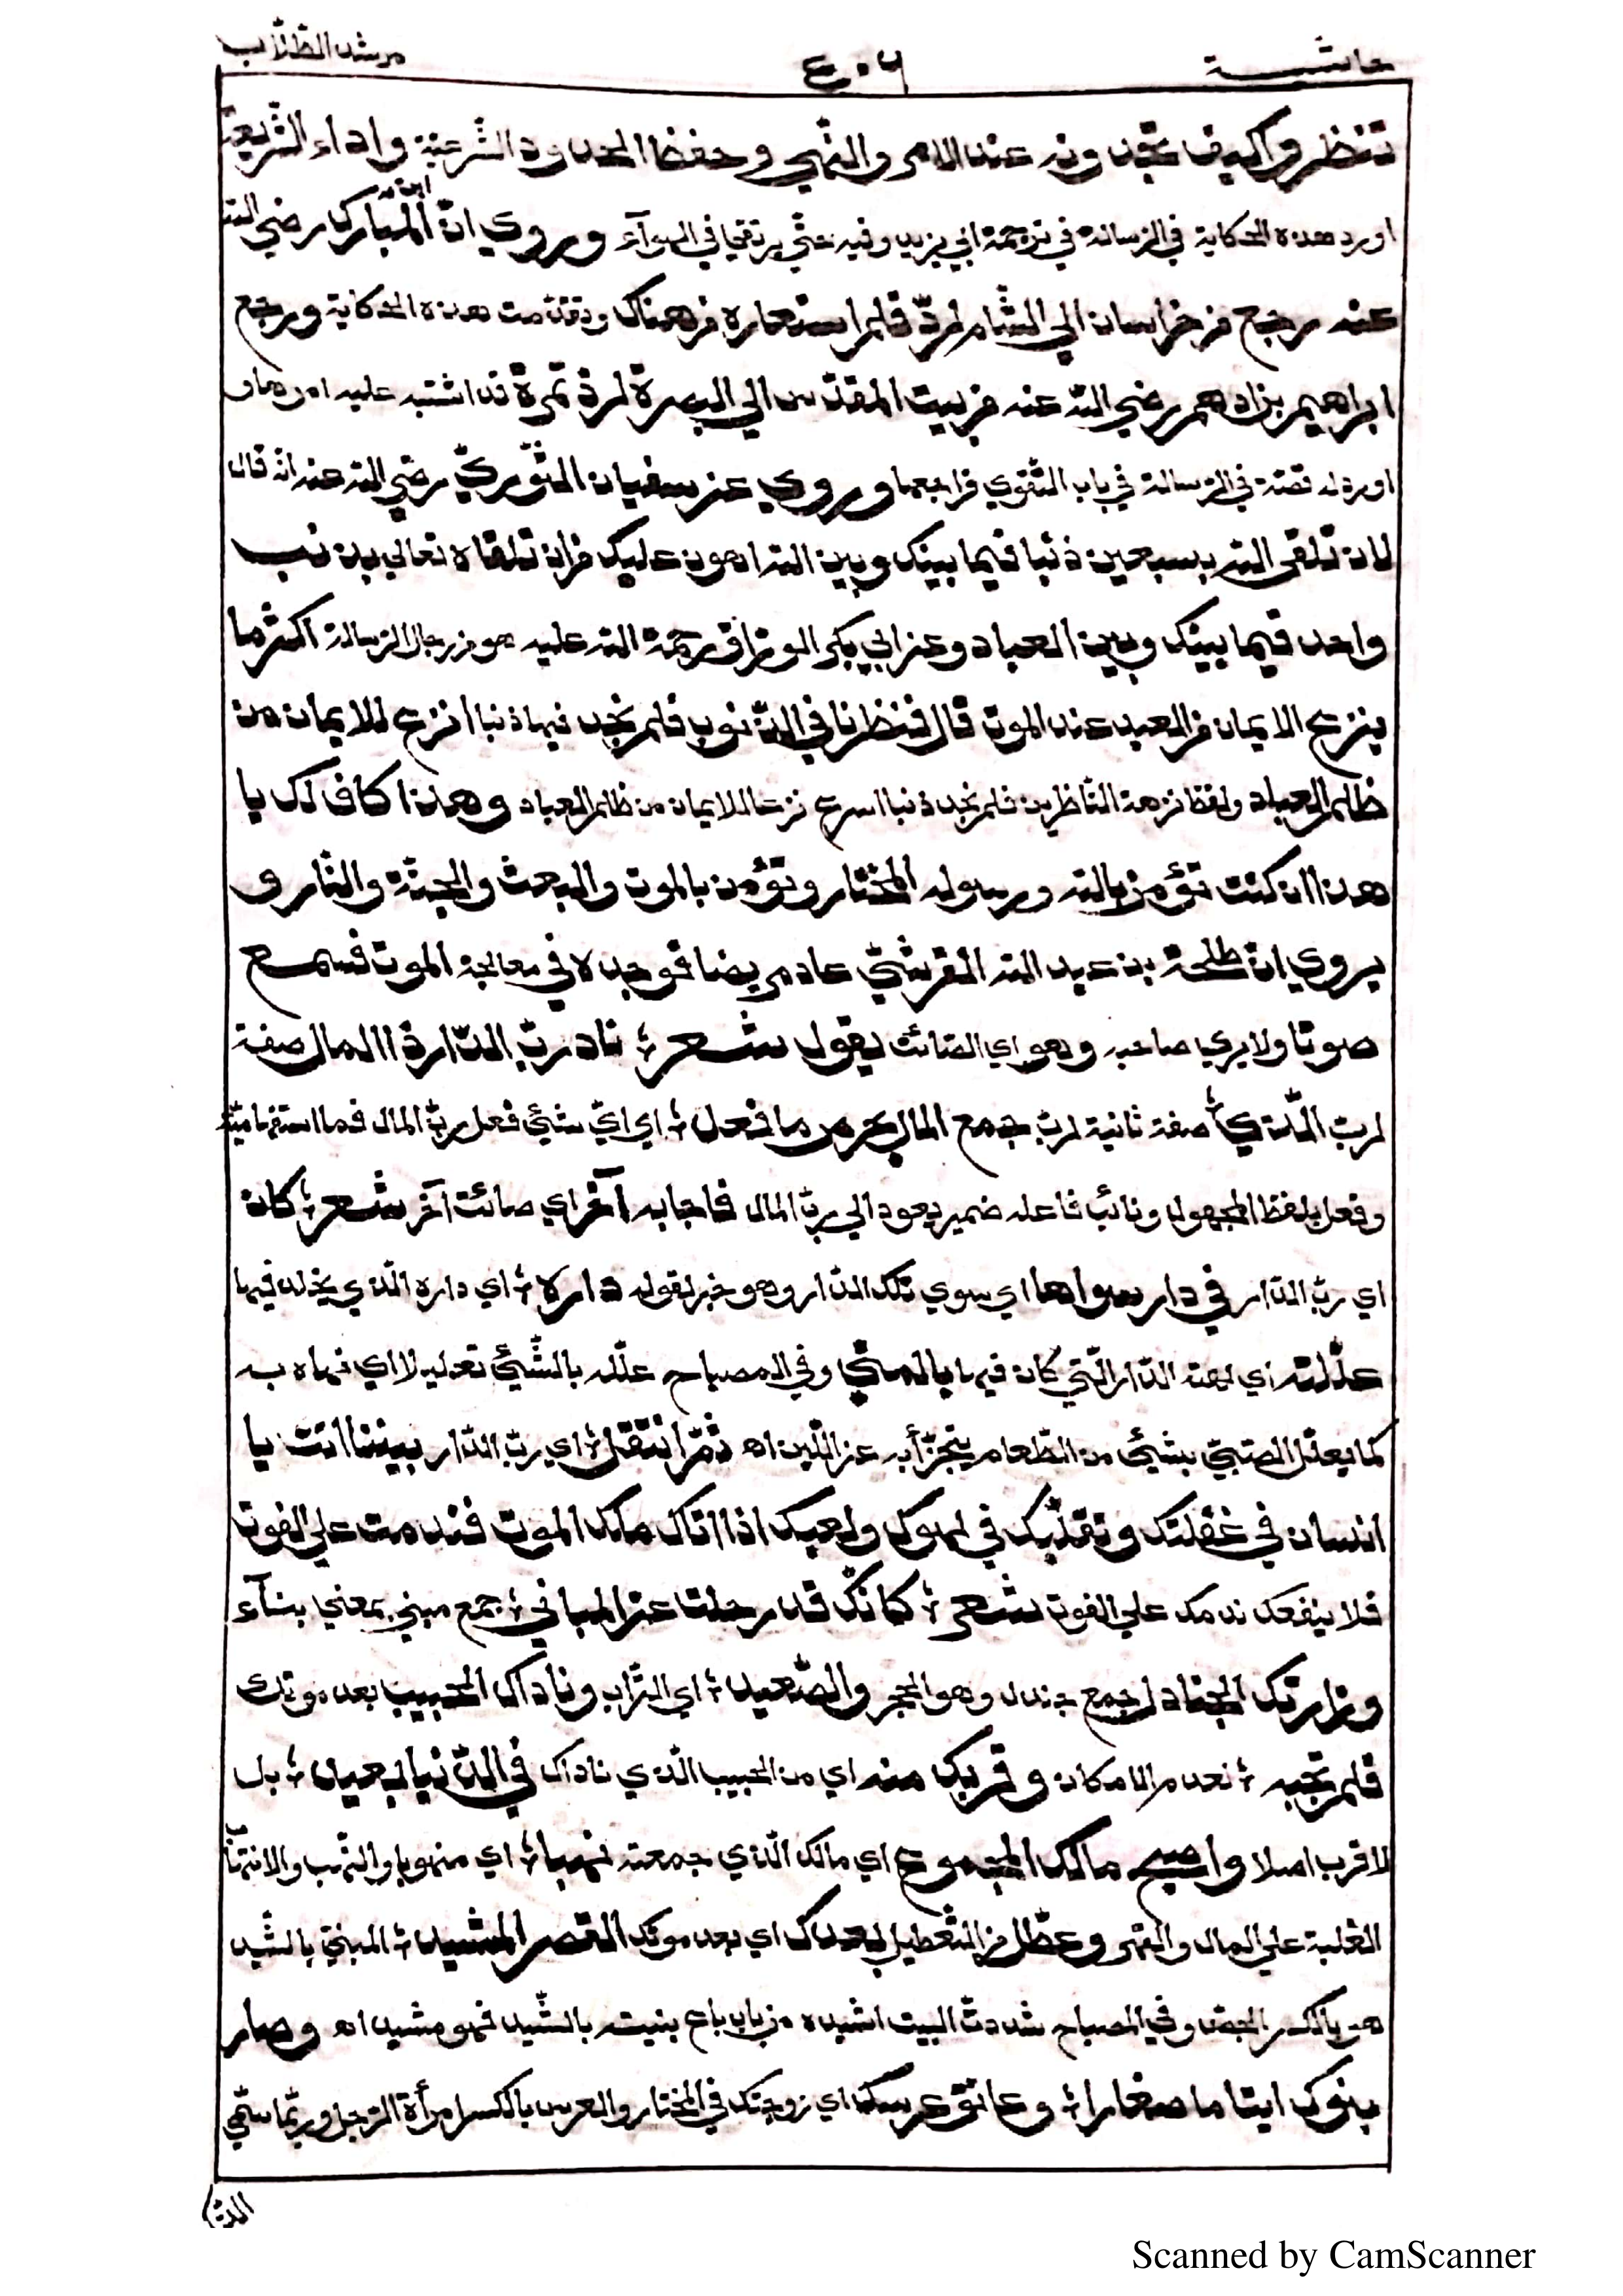 حاشية ٤٠٦ مرشد الطلاب
تنظروا كيف تجدونه عند الامر والنهي وحفظ الحدود الشرعية واداء الشريعة
اورد هذه الحكاية في الرسالة في ترجمة ابي يزيد وفيه حتى يرتقي في الهوآء وروي ان ابن المبارك رضي الله
عنه رجع من خراسان الي الشام لردّ قلم استعاره من هناك وقد تقدمت هذه الحكاية ورجع
ابراهيم بن ادهم رضي الله عنه من بيت المقدس الي البصرة لرد تمرة قد اشتبه عليه امرها
اورد له قصة في الرسالة في باب التقوي فراجعها وروي عن سفيان الثوريّ رضي الله عنه انه قال
لان تلقى الله بسبعين ذنبا فيما بينك وبين الله اهون عليك من ان تلقاه تعالي بذنب
واحد فيما بينك وبين العباد وعن ابي بكر الوراق رحمة الله عليه هو من رجال الرسالة اكثر ما
ينزع الايمان من العبد عند الموت قال فنظرنا في الذنوب فلم نجد فيها ذنبا انزع للايمان من
ظلم العباد ولفظ نزهة الناظرين فلم نجد ذنبا اسرع نزعا للايمان من ظلم العباد وهذا كاف لك يا
هذا ان كنت تؤمن بالله ورسوله المختار وتؤمن بالموت والبعث والجنة والنار و
يروي ان طلحة بن عبيد الله القرشيّ عاد مريضا فوجده في معالجة الموت فسمع
صوتا ولا يري صاحبه وهو اي الصائت يقول شعر ؛ ناد ربّ الدّار ذا المال صفة
لربّ الّذي ؛ صفة ثانية لربّ جمع المال بحرص ما فعل ؛ اي ايّ شئ فعل ربّ المال فما استفهاميّة
وفعل بلفظ المجهول ونائب فاعله ضمير يعود الي ربّ المال فاجابه آخر اي صائت آخر شعر ؛ كان
اي ربّ الدّار في دار سواها اي سوي تلك الدّار وهو خبر لقوله داره ؛ اي داره الّذي يخلد فيها
علّلته اي لهته الدّار الّتي كان فيها بالمني وفي المصباح علّله بالشّئ تعليلا اي لهاه به
كما يعلّل الصّبيّ بشئ من الطّعام يتجزّأ به عن اللّبن اهـ ثمّ انتقل ؛ اي ربّ الدّار بيننا انت يا
انسان في غفلتك وتقلّبك في لهوك ولعبك اذا اتاك ملك الموت فندمت علي الفوت
فلا ينفعك ندمك علي الفوت شعر ؛ كانّك قد رحلت عن المباني ؛ جمع مبني بمعني بنآء
وزارتك الجنادل جمع جندل وهو الحجر والصّعيد ؛ اي التّراب وناداك الحبيب بعد موتك
فلم تجبه ؛ لعدم الامكان وقربك منه اي من الحبيب الّذي ناداك في الدّنيا بعيد ؛ بل
لا قرب اصلا واصبح مالك المجموع اي مالك الّذي جمعته نهبا ؛ اي منهوبا والنّهب والانتهاب
الغلبة علي المال والقهر وعطّل من التّعطيل بعدك اي بعد موتك القصر المشيد ؛ المبنيّ بالشّيد
هو بالكسر الجصّ وفي المصباح شدت البيت اشيده من باب باع بنيته بالشّيد فهو مشيد اهـ وصار
بنوك ايتاما صغارا ؛ وعانق عرسك اي زوجتك في المختار والعرس بالكسر امرأة الرّجل وربّما سمّي
Scanned by CamScanner